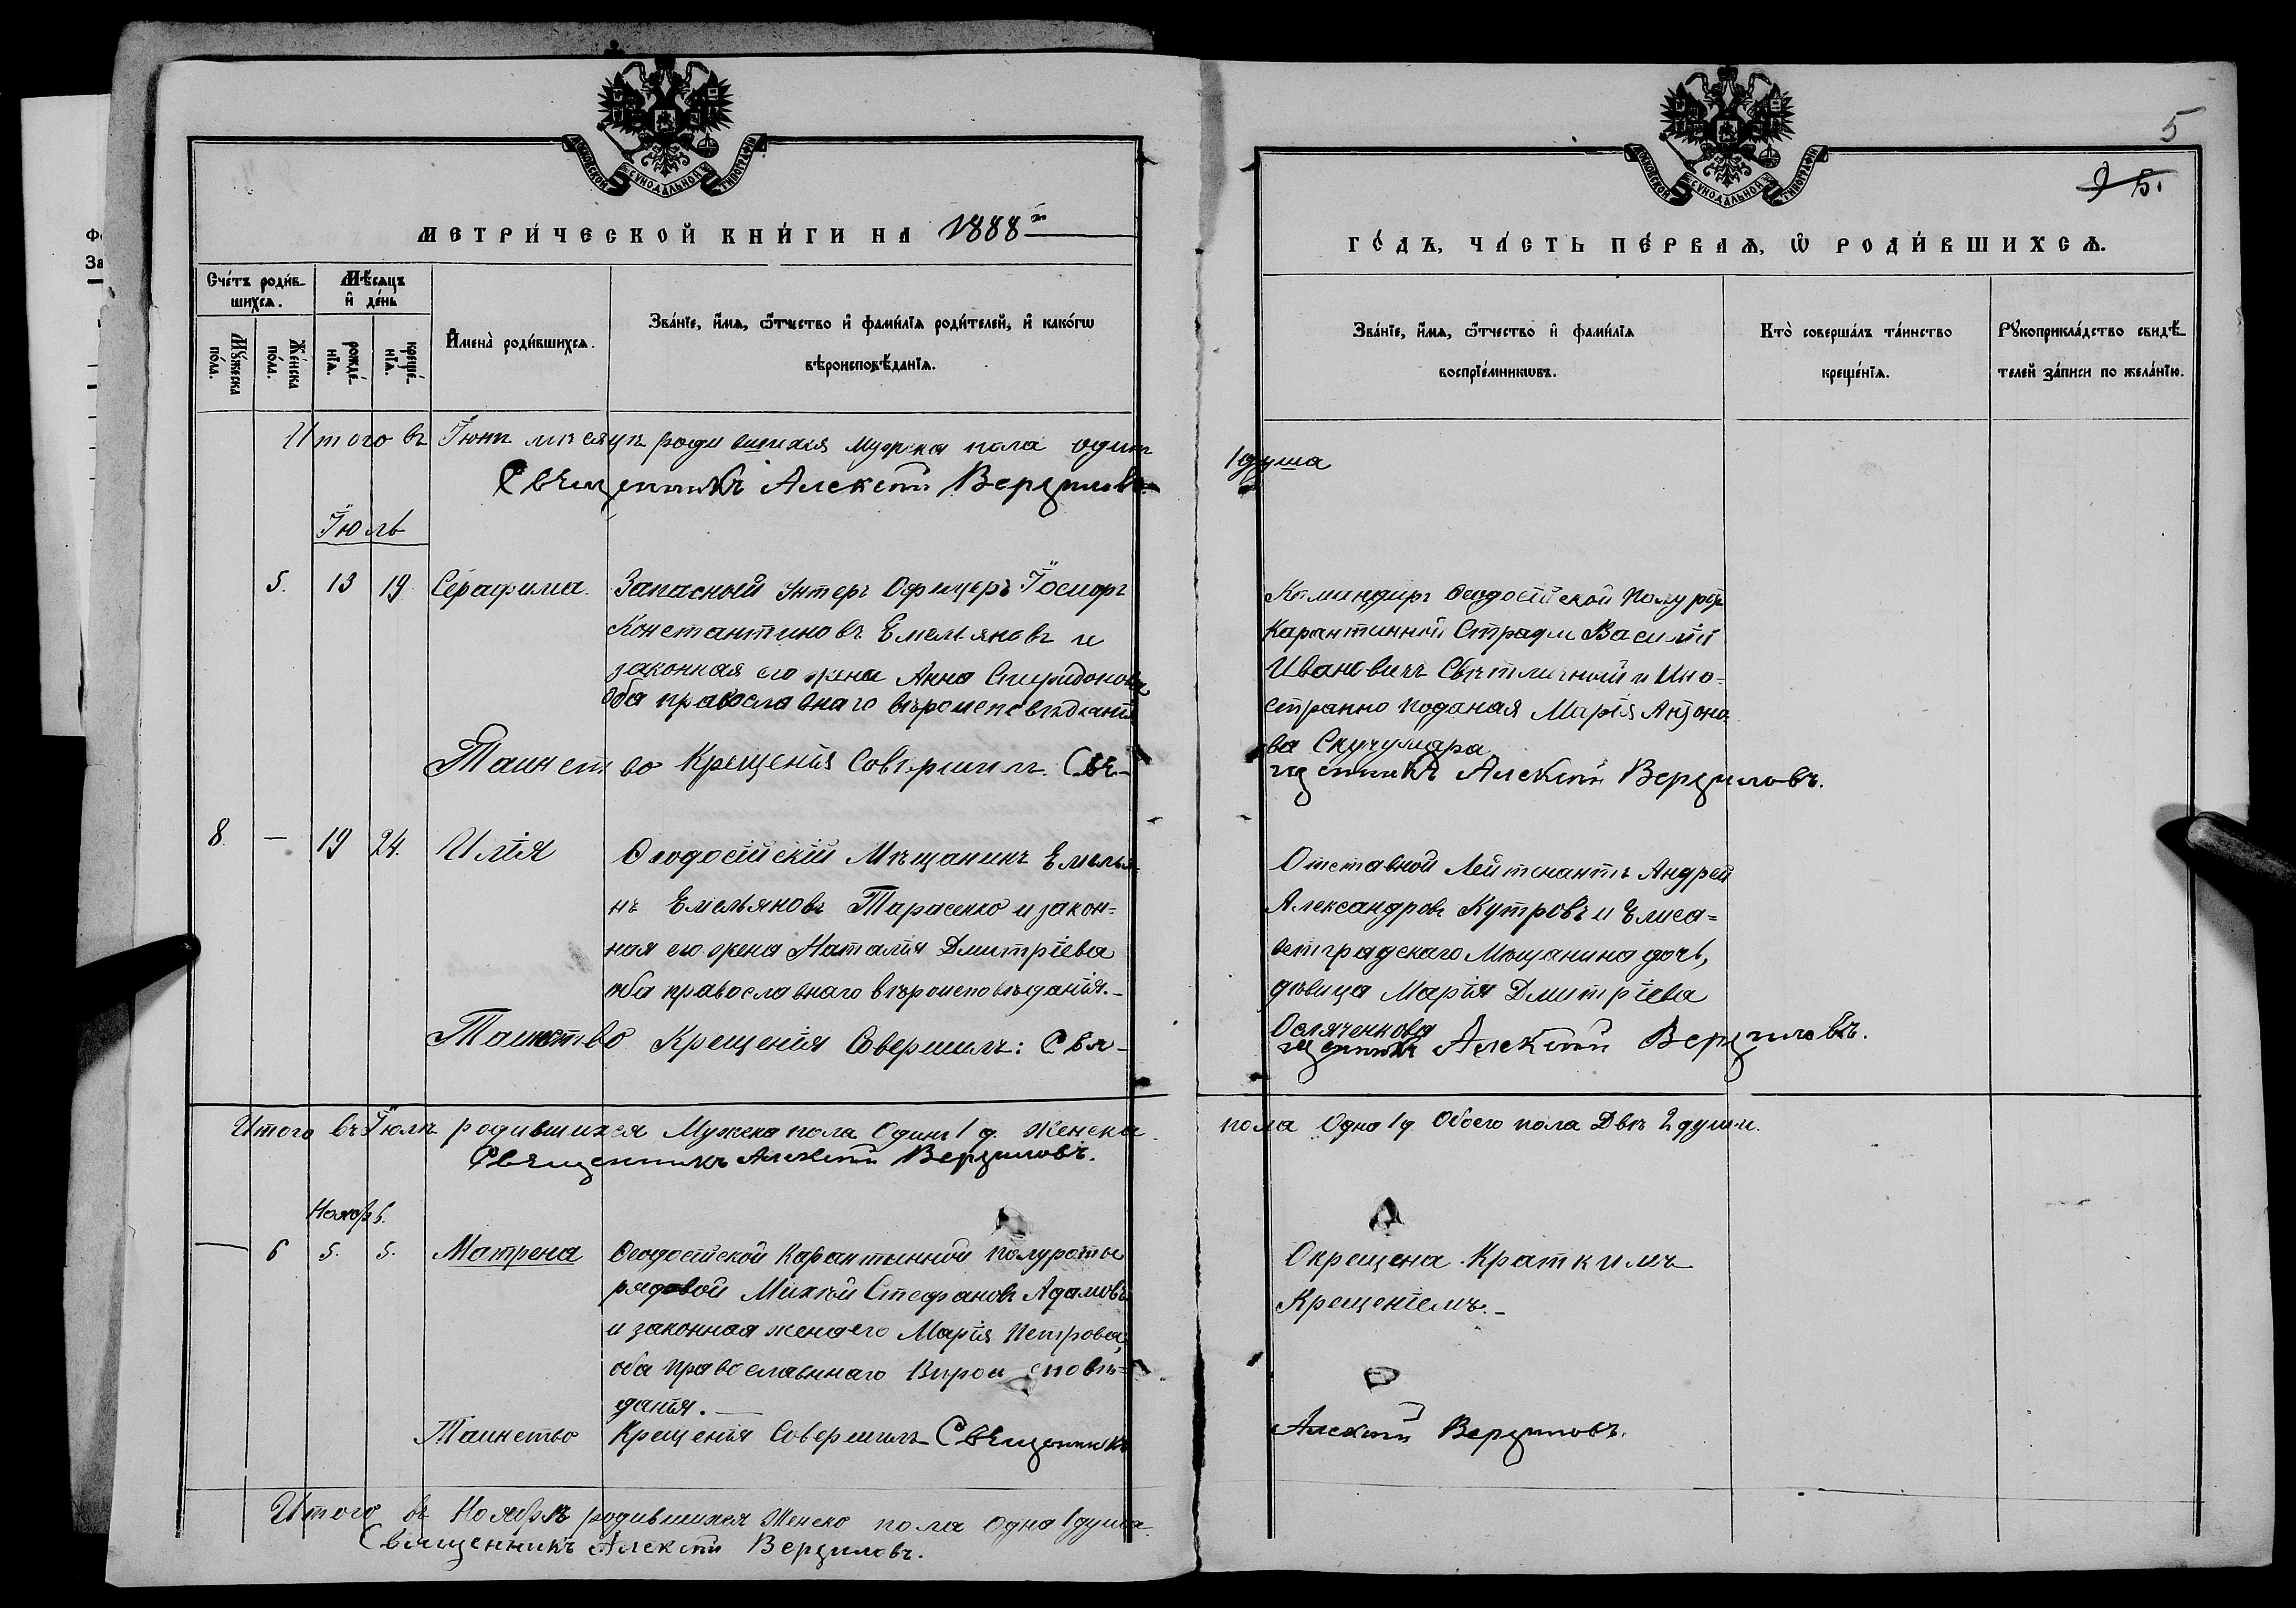 МОСКОВСКОЙ СѴНОДАЛЬНОЙ ТИПОГРАФІИ
МЕТРИ́ЧЕСКОЙ КНИ́ГИ НА 1888й
Сче́тъ роди́вшихсѧ.
Мѣ́сѧцъ и҆ де́нь
Мꙋ́жеска по́ла.
Же́нска по́ла.
рожде́нїѧ.
креще́нїѧ.
И҆мена̀ роди́вшихсѧ.
Зва́нїе, и҆́мѧ, ѻ҆́тчество и҆ фами́лїѧ роди́телей, и҆ како́гѡ
вѣроисповѣ́данїѧ.
Итого въ Іюнѣ мѣсяцѣ родившихся мужска пола одинъ
Священникъ Алексѣй Верзиловъ
Іюль
5. 13 19 Серафима. Запасный Унтеръ Офицеръ Іосифъ
Константиновъ Емельяновъ и
законная его жена Анна Спиридонова
оба православнаго вѣроисповѣданія
Таинство Крещенія Совершилъ Свя-
8. — 19 24. Илія Ѳеодосійскій Мѣщанинъ Емелья-
нъ Емельяновъ Тарасенко и закон=
ная его жена Наталія Дмитріева
оба православнаго вѣроисповѣданія.—
Таинство Крещенія Совершилъ: Свя-
Итого въ Іюлѣ родившихся Мужска пола Одинъ 1 д. Женска
Священникъ Алексѣй Верзиловъ.
Ноябрь.
— 6 5. 5. Матрена Ѳеодосійской Карантинной полуроты
рядовой Михѣй Стефановъ Адамовъ
и законная жена его Марія Петрова,
оба православннаго Вѣроисповѣ=
данія.—
Таинство Крещенія Совершилъ Священникъ
Итого въ Ноябрѣ родившихся Женско пола одна 1 душа
Священникъ Алексѣй Верзиловъ.
5
5.
МОСКОВСКОЙ СѴНОДАЛЬНОЙ ТИПОГРАФІИ
ГО́ДЪ, ЧА́СТЬ ПЕ́РВАѦ, Ѡ҆ РОДИ́ВШИХСѦ.
Зва́нїе, и҆́мѧ, ѻ҆́тчество и҆ фами́лїѧ
воспрїе́мникѡвъ.
Кто̀ соверша́лъ та́инство
креще́нїѧ.
Рꙋкоприкла́дство свидѣ́-
телей за́писи по жела́нїю.
1 душа
Командиръ Ѳеодосійской Полурот
Карантинной Стражи Василій
Ивановичъ Свѣтличный и Ино-
странно поданая Марія Антоно
ва
щенникъ Алексѣй Верзиловъ.
Отставной Лейтенантъ Андрей
Александровъ Кутровъ и Елиса=
ветградскаго Мѣщанина дочь,
дѣвица Марія Дмитріева
щенникъ Алексѣй Верзиловъ.
пола Одна 1 д Обоего пола Двѣ 2 души.
Окрещена Краткимъ
Крещеніемъ.—
Алексѣй Верзиловъ.